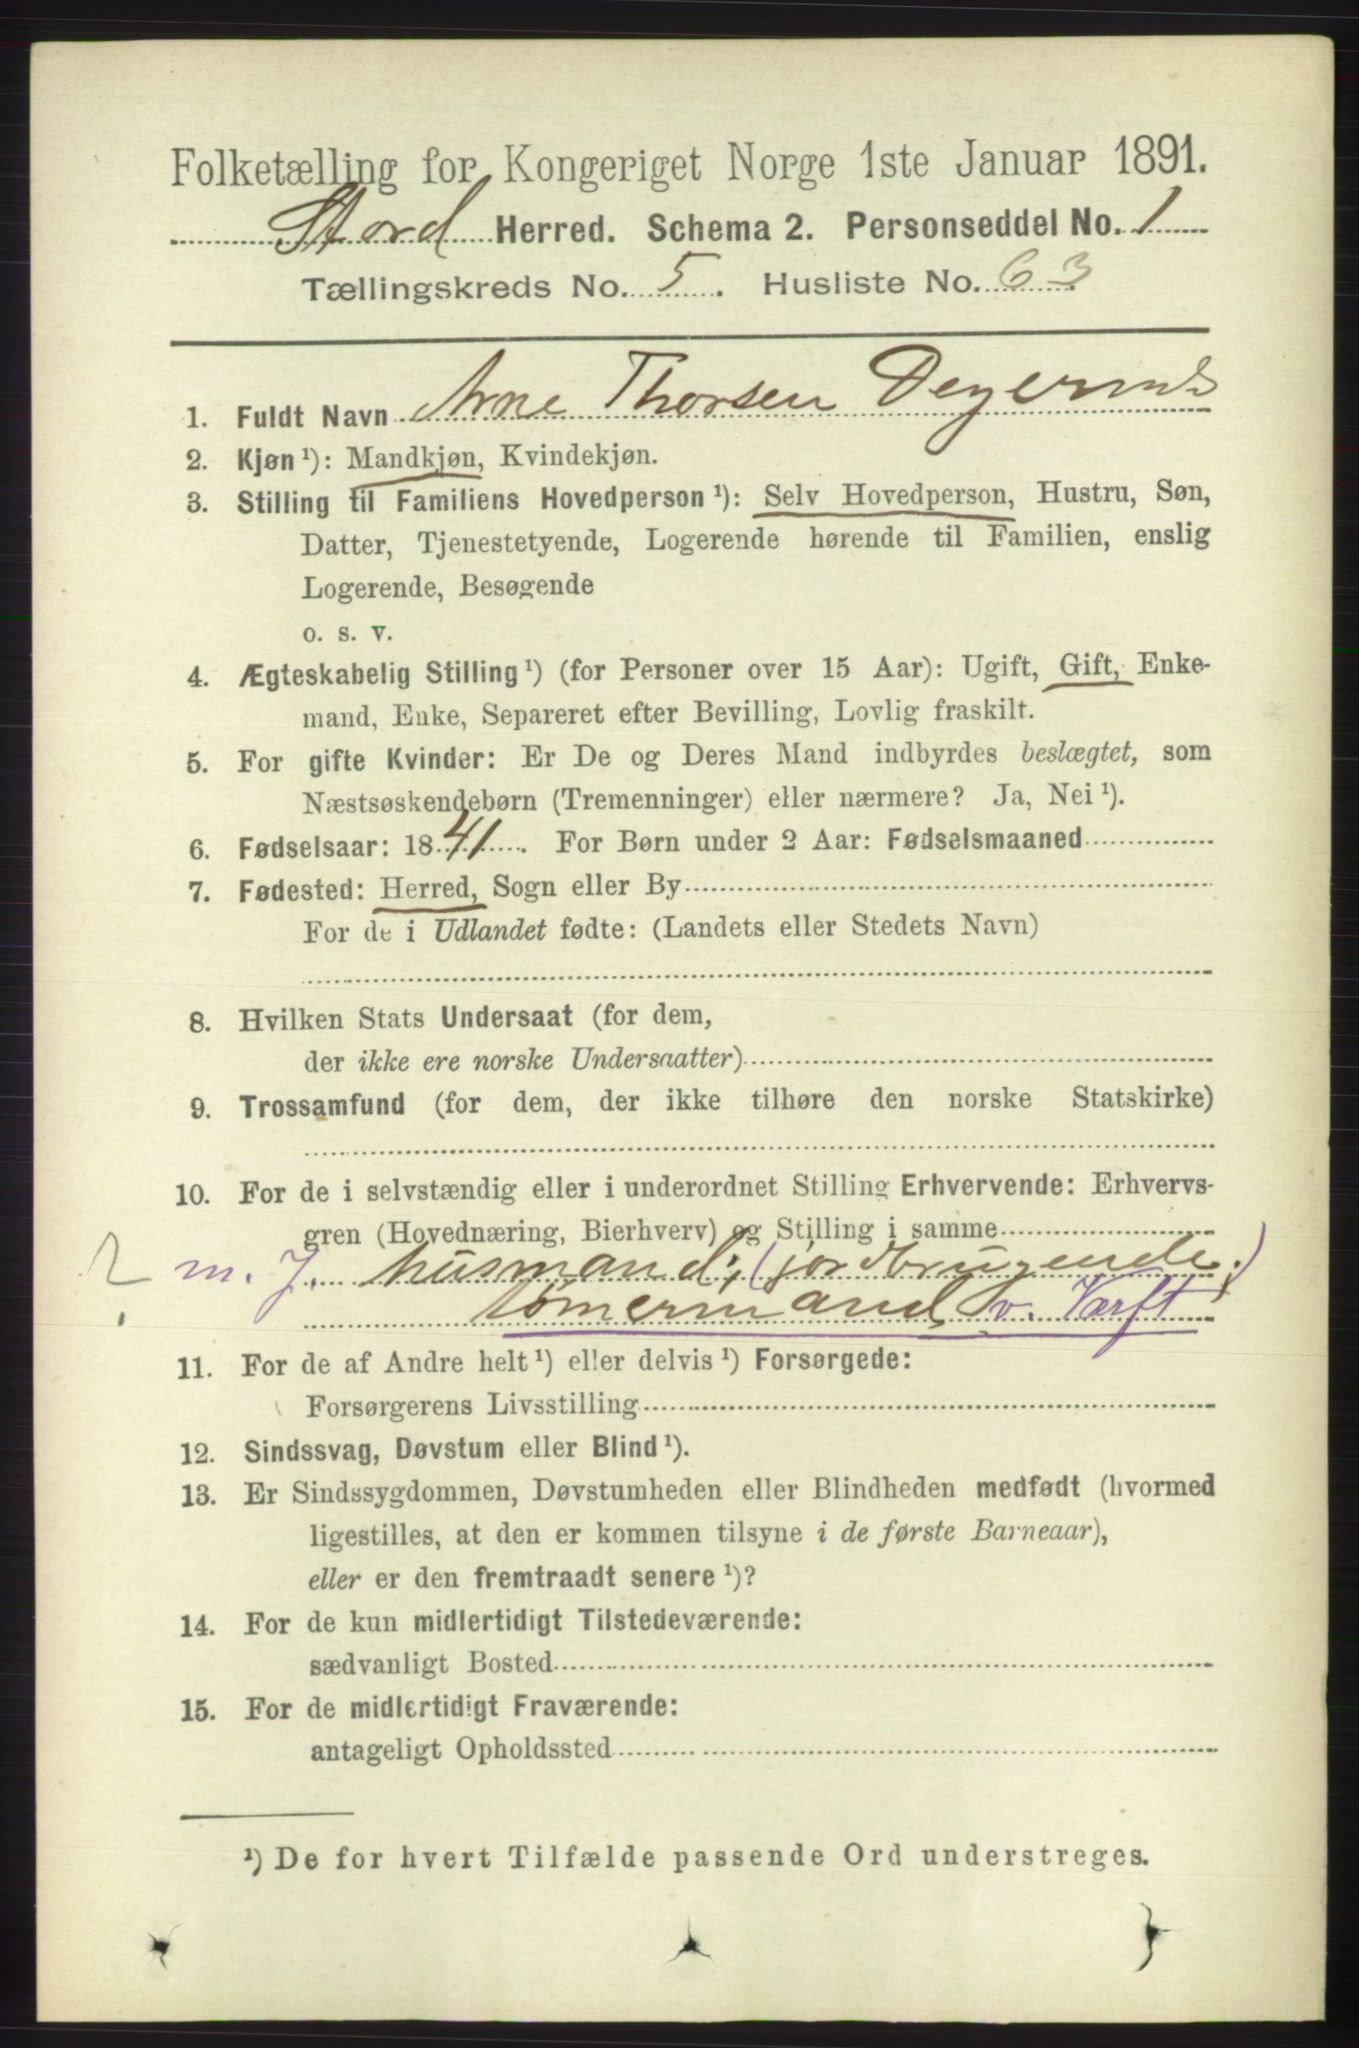 Folketælling for Kongeriget Norge 1ste Januar 1891.
Stord Herred. Schema 2. Personseddel No. 1
Tællingskreds No. 5. Husliste No. 63
1. Fuldt Navn Arne Thorsen
2. Kjøn ¹): Mandkjøn, Kvindekjøn.
3. Stilling til Familiens Hovedperson ¹): Selv Hovedperson, Hustru, Søn,
Datter, Tjenestetyende, Logerende hørende til Familien, enslig
Logerende, Besøgende
o. s. v.
4. Ægteskabelig Stilling ¹) (for Personer over 15 Aar): Ugift, Gift, Enke-
mand, Enke, Separeret efter Bevilling, Lovlig fraskilt.
5. For gifte Kvinder: Er De og Deres Mand indbyrdes beslægtet, som
Næstsøskendebørn (Tremenninger) eller nærmere? Ja, Nei ¹).
6. Fødselsaar: 1841. For Børn under 2 Aar: Fødselsmaaned
7. Fødested: Herred, Sogn eller By
For de i Udlandet fødte: (Landets eller Stedets Navn)
8. Hvilken Stats Undersaat (for dem,
der ikke ere norske Undersaatter)
9. Trossamfund (for dem, der ikke tilhøre den norske Statskirke)
10. For de i selvstændig eller i underordnet Stilling Erhvervende: Erhvervs-
gren (Hovednæring, Bierhverv) og Stilling i samme
? m. J. husmand; (jordbrugende;)
tømermand v. Værft
11. For de af Andre helt ¹) eller delvis ¹) Forsørgede:
Forsørgerens Livsstilling
12. Sindssvag, Døvstum eller Blind ¹).
13. Er Sindssygdommen, Døvstumheden eller Blindheden medfødt (hvormed
ligestilles, at den er kommen tilsyne i de første Barneaar),
eller er den fremtraadt senere ¹)?
14. For de kun midlertidigt Tilstedeværende:
sædvanligt Bosted
15. For de midlertidigt Fraværende:
antageligt Opholdssted
¹) De for hvert Tilfælde passende Ord understreges.